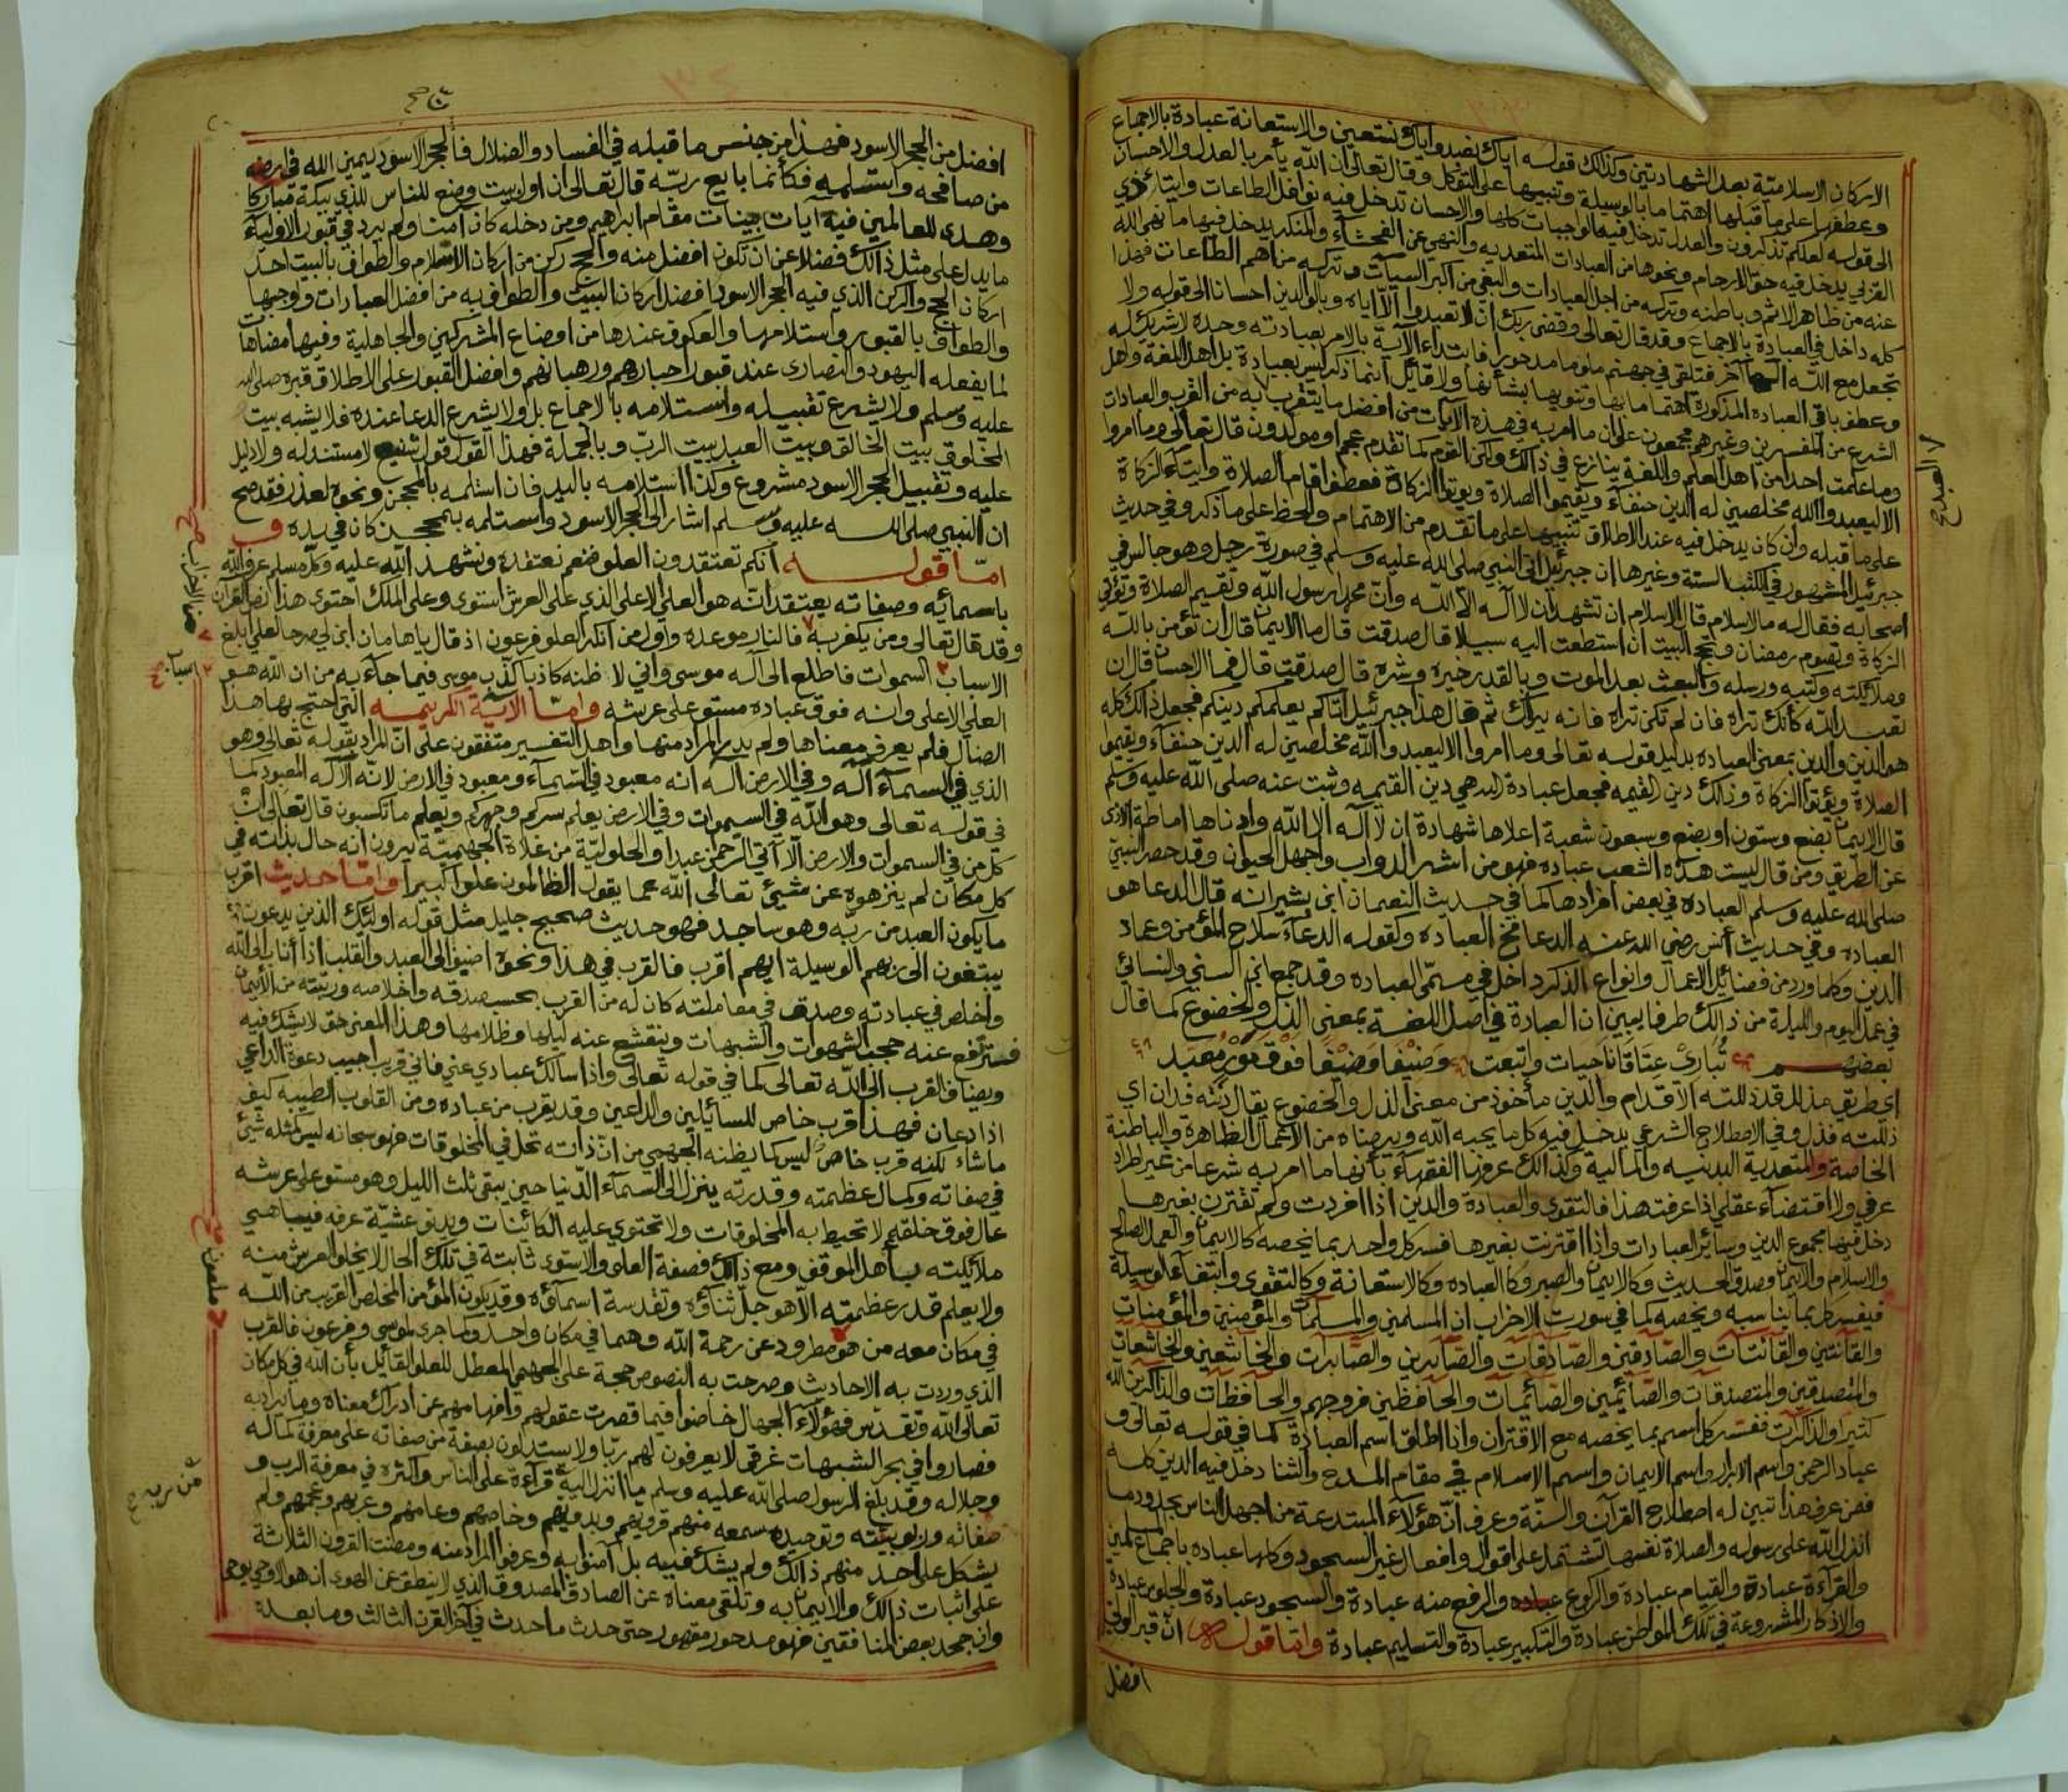 الاركان الاسلامية بعد الشهادتين وكذلك قوله اياك نعبد واياك نستعين والاستعانة عبادة بالاجماع
وعطفها على ما قبلها اهتماما بالوسيلة وتنبيها على التوكل وقال تعالى ان الله يأمر بالعدل والاحسان
الى قوله لعلكم تذكرون والعدل تدخل فيه الواجبات كلها والاحسان تدخل فيه نوافل الطاعات وايتائ ذي
القربى يدخل فيه حق الارحام ونحوها من العبادات المتعديه والنهي عن الفحشاء والمنكر يدخل فيها ما نهى الله
عنه من ظاهر الاثم وباطنه وتركه من اجل العبادات والبغي من اكبر السيآت وتركه من اهم الطاعات فهذا
كله داخل في العبادة بالاجماع وقد قال تعالى وقضى ربك ان لا تعبدوا الا اياه وبالوالدين احسانا الى قوله ولا
تجعل مع الله الها آخر فتلقى في جهنم ملوما مدحورا فابتداء الآية بالامر بعبادته وحده لا شريك له
وعطف باقي العباده المذكورة اهتماما بها وتنويها بشأنها ولا قائل انما ذكر ليس بعبادة بل اهل اللغة واهل
الشرع من المفسرين وغيرهم مجمعون على ان ما امر به في هذه الآيات من افضل ما يتقرب به من القرب والعبادات
وما علمت احدا من اهل العلم واللغة ينازع في ذالك ولكن القوم كما تقدم عجم او مولدون قال تعالى وما امروا
الا ليعبدوا الله مخلصين له الدين حنفاء ويقيموا الصلاة ويوتوا الزكاة فعطف اقام الصلاة وايتاء الزكاة
على ما قبله وان كان يدخل فيه عند الاطلاق تنبيها على ما تقدم من الاهتمام والحظ على ما ذكر وفي حديث
جبرئيل المشهور في الكتب الستة وغيرها ان جبرئيل اتى النبي صلى الله عليه وسلم في صورة رجل وهو جالس في
اصحابه فقال له ما الاسلام قال الاسلام ان تشهد ان لا اله الا الله وان محمد رسول الله وتقيم الصلاة وتؤتي
الزكاة وتصوم رمضان وتحج البيت ان استطعت اليه سبيلا قال صدقت قال ما الايمان قال ان تؤمن بالله
وملائكته وكتبه ورسله والبعث بعد الموت وبالقدر خيره وشره قال صدقت قال فما الاحسان قال ان
تعبد الله كأنك تراه فان لم تكن تراه فانه يراك ثم قال هذا جبرئيل اتاكم يعلمكم دينكم فجعل ذالك كله
هو الدين والدين بمعنى العباده بدليل قوله تعالى وما امروا الا ليعبدوا الله مخلصين له الدين حنفاء ويقيموا
الصلاة ويؤتوا الزكاة وذالك دين القيمه فجعل عبادة الله هي دين القيمه وثبت عنه صلى الله عليه وسلم
قال الايمان بضع وستون او بضع وسبعون شعبة اعلاها شهادة ان لا اله الا الله وادناها اماطة الاذى
عن الطريق ومن قال ليست هذه الشعب عباده فهو من اشر الدواب واجهل الحيوان وقد حصر النبي
صلى الله عليه وسلم العباده في بعض افرادها كما في حديث النعمان ابن بشير انه قال الدعا هو
العباده وفي حديث أنس رضي الله عنه الدعا مخ العباده وكقوله الدعاء سلاح المؤمن وعماد
الدين وكلما ورد من فضائل الاعمال وانواع الذكر داخل في مسمى العباده وقد جمع ابن السني والنسائي
في عمل اليوم والليلة من ذالك طرفا يبين ان العبادة في اصل اللغة بمعنى الذل والخضوع كما قال
بعضهم تباري عتاقا ناجيات واتبعت وضيفا وضيفا فوق مور معبد
اي طريق مذلل قد ذللته الاقدام والدين مأخوذ من معنى الذل والخضوع يقال دنته فدان اي
ذللته فذل وفي الاصطلاح الشرعي يدخل فيه كل ما يحبه الله ويرضاه من الاعمال الظاهرة والباطنة
الخاصة والمتعدية البدنيه والماليه وكذالك عرفها الفقهاء بأنها ما امر به شرعا من غير اطراد
عرفي ولا اقتضاء عقلي اذا عرفت هذا فالتقوى والعبادة والدين اذا افردت ولم تقترن بغيرها
دخل فيها مجموع الدين وسائر العبادات واذا اقترنت بغيرها فسر كل واحد بما يخصه كالايمان والعمل الصالح
والاسلام والايمان وصدق الحديث وكالايمان والصبر وكالعباده وكالاستعانة وكالتقوى وابتغاء الوسيلة
فيفسر كل بما يناسبه ويخصه كما في سورت الاحزاب ان المسلمين والمسلمات والمؤمنين والمؤمنات
والقانتين والقانتات والصادقين والصادقات والصابرين والصابرات والخاشعين والخاشعات
والمتصدقين والمتصدقات والصائمين والصائمات والحافظين فروجهم والحافظات والذاكرين الله
كثيرا والذاكرات ففسر كل اسم بما يخصه مع الاقتران واذا اطلق اسم العبادة كما في قوله تعالى و
عباد الرحمن واسم الابرار واسم الايمان واسم الاسلام في مقام المدح والثنا دخل فيه الدين كله
فمن عرف هذا تبين له اصطلاح القرآن والسنة وعرف ان هؤلاء المبتدعة من اجهل الناس بحدود ما
انزل الله على رسوله والصلاة نفسها تشتمل على اقوال وافعال غير السجود وكلها عباده باجماع المسلمين
والقرآءة عبادة والقيام عبادة والركوع عباده والرفع منه عبادة والسجود عبادة والجلوس عبادة
والاذكار المشروعة في تلك المواطن عبادة والتكبير عبادة والتسليم عبادة واما قوله ان قبر الولي
افضل
افضل من الحجر الاسود فهذا من جنس ما قبله في الفساد والضلال فالحجر الاسود يمين الله في ارضه
من صافحه واستلمه فكأنما بايع ربه قال تعالى ان اول بيت وضع للناس للذي ببكة مباركا
وهدى للعالمين فيه آيات بينات مقام ابراهيم ومن دخله كان آمنا ولم يرد في قبور الاولياء
ما يدل على مثل ذالك فضلا عن ان تكون افضل منه والحج ركن من اركان الاسلام والطواف بالبيت احد
اركان الحج والركن الذي فيه الحجر الاسود افضل اركان البيت والطواف به من افضل العبادات واوجبها
والطواف بالقبور واستلامها والعكوف عندها من اوضاع المشركين والجاهلية وفيها مضاهات
لما يفعله اليهود والنصارى عند قبور احبارهم ورهبانهم وافضل القبور على الاطلاق قبره صلى الله
عليه وسلم ولا يشرع تقبيله واستلامه بالاجماع بل ولا يشرع الدعا عنده فلا يشبه بيت
المخلوق ببيت الخالق وبيت العبد ببيت الرب وبالجملة فهذا القول قول شنيع لا مستند له ولا دليل
عليه وتقبيل الحجر الاسود مشروع وكذا استلامه باليد فان استلمه بالمحجن ونحوه لعذر فقد صح
ان النبي صلى الله عليه وسلم اشار الى الحجر الاسود واستلمه بمحجن كان في يده و
اما قوله انكم تعتقدون العلو فنعم نعتقده ونشهد الله عليه وكل مسلم عرف الله
باسمائه وصفاته يعتقد انه هو العلي الاعلى الذي على العرش استوى وعلى الملك احتوى هذا نص القرآن
وقد قال تعالى ومن يكفر به فالنار موعده واول من انكر العلو فرعون اذ قال يا هامان ابن لي صرحا لعلي ابلغ
الاسباب السموات فاطلع الى اله موسى واني لاظنه كاذبا كذب موسى فيما جاء به من ان الله هو
العلي الاعلى وانه فوق عباده مستو على عرشه واما الآية الكريمه التي احتج بها هذا
الضال فلم يعرف معناها ولم يدر المراد منها واهل التفسير متفقون على ان المراد بقوله تعالى وهو
الذي في السماء اله وفي الارض اله انه معبود في السماء ومعبود في الارض لانه الاله المعبود كما
في قوله تعالى وهو الله في السموات وفي الارض يعلم سركم وجهركم ويعلم ما تكسبون قال تعالى ان
كل من في السموات والارض الا آتي الرحمن عبدا والحلولية من غلاة الجهمية يرون انه حال بذاته في
كل مكان لم ينزهوه عن شيئ تعالى الله عما يقول الظالمون علوا كبيرا واما حديث اقرب
ما يكون العبد من ربه وهو ساجد فهو حديث صحيح جليل مثل قوله اولئك الذين يدعون
يبتغون الى ربهم الوسيلة ايهم اقرب فالقرب في هذا ونحوه اضيف الى العبد والقلب اذا أناب الى الله
واخلص في عبادته وصدق في معاملته كان له من القرب بحسب صدقه واخلاصه ورتبته من الايمان
فترتفع عنه حجب الشهوات والشبهات وينقشع عنه ليلها وظلامها وهذا المعنى حق لا يشك فيه
ويضاف القرب الى الله تعالى كما في قوله تعالى واذا سألك عبادي عني فاني قريب اجيب دعوة الداعي
اذا دعان فهذا قرب خاص للسائلين والداعين وقد يقرب من عباده ومن القلوب الطيبه كيف
ماشاء لكنه قرب خاص ليس كما يظنه الجهمي من ان ذاته تحل في المخلوقات فهو سبحانه ليس كمثله شيئ
في صفاته وكمال عظمته وقدرته ينزل الى السماء الدنيا حين يبقى ثلث الليل وهو مستو على عرشه
عال فوق خلقه لا تحيط به المخلوقات ولا تحتوي عليه الكائنات ويدنو عشية عرفه فيباهي
ملائكته بأهل الموقف ومع ذالك فصفة العلو والاستوى ثابتة في تلك الحال لا يخلو العرش منه
ولا يعلم قدر عظمته الا هو جل ثناؤه وتقدسة اسماؤه وقد يكون المؤمن المخلص القرب من الله
في مكان معه من هو مطرود عن رحمة الله وهما في مكان واحد وكما جرى لموسى وفرعون فالقرب
الذي وردت به الاحاديث وصرحت به النصوص حجة على الجهمي المعطل للعلو القائل بأن الله في كل مكان
تعالى الله وتقدس فهؤلاء الجهال خاضوا فيما قصرت عقولهم وافهامهم عن ادراك معناه وما يراد به
فصاروا في بحر الشبهات غرقى لا يعرفون لهم ربا ولا يستدلون بصفة من صفاته على معرفة كماله
وجلاله وقد بلغ الرسول صلى الله عليه وسلم ما انزل اليه قرآءة على الناس واكثره في معرفة الرب و
صفاته وربوبيته وتوحيده سمعه منهم قرويهم وبدويهم وخاصهم وعامهم وعربهم وعجمهم ولم
يشكل على أحد منهم ذالك ولم يشك فيه بل آمنوا به وعرفوا المراد منه ومضت القرون الثلاثة
على اثبات ذالك والايمان به وتلقي معناه عن الصادق المصدوق الذي لا ينطق عن الهوى ان هو الا وحي يوحى
وان جحد بعض المنافقين فهو مدحور مقهور حتى حدث ما احدث في آخر القرن الثالث وما بعده